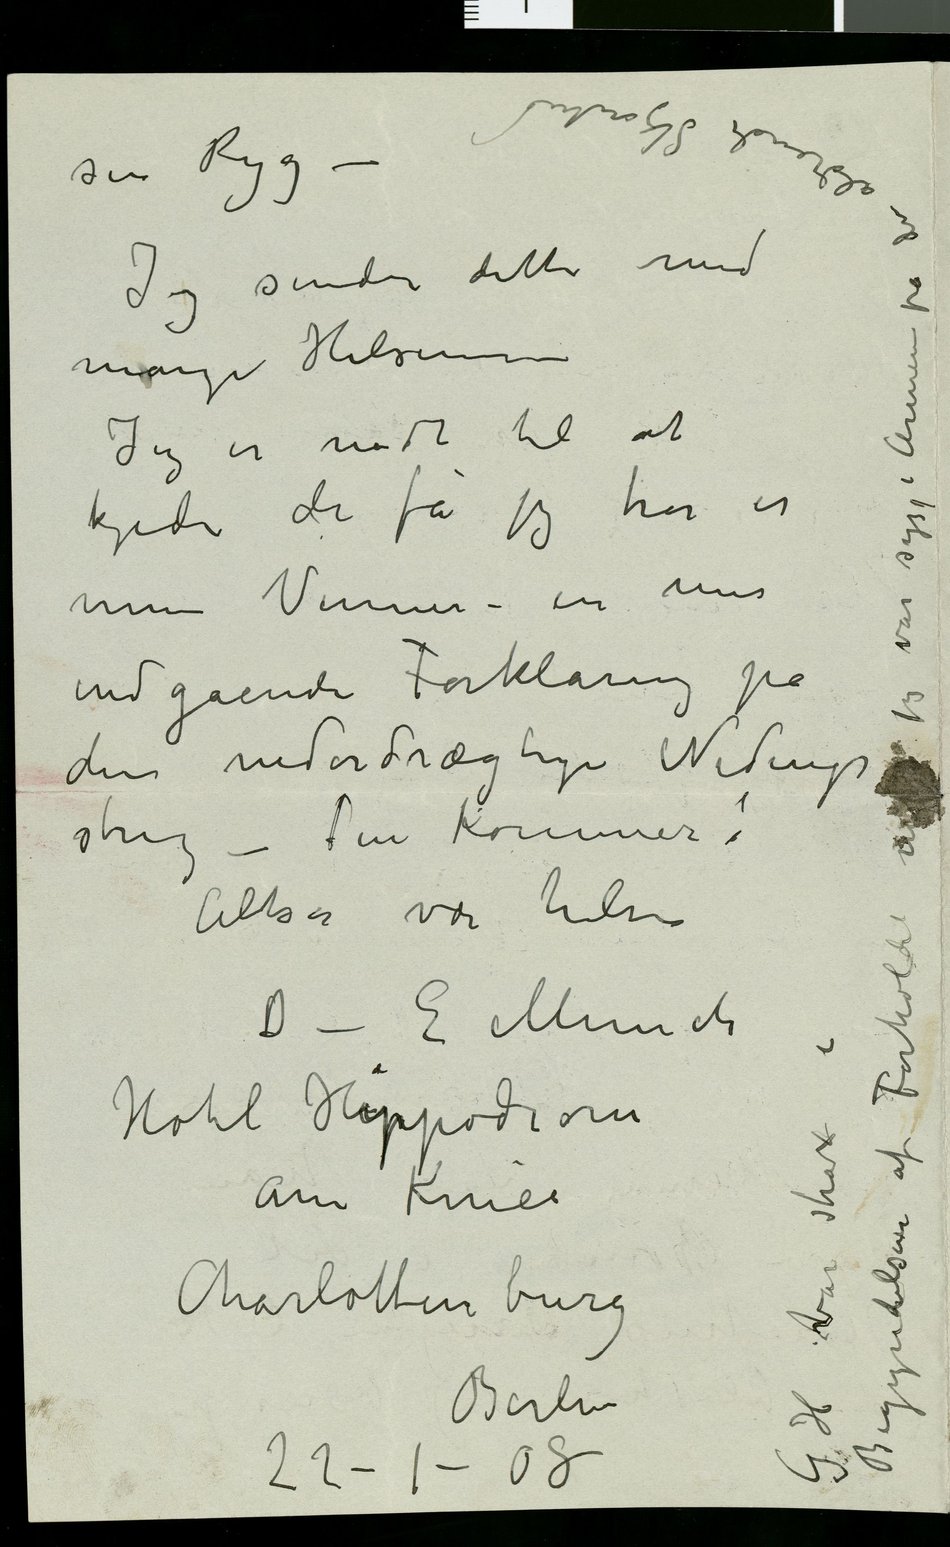 sin Ryg –
Jeg sender dette med
mange Hilsener
Jeg er nødt til at
kjede de få jeg tror er
mine Venner – en mer
indgaaende Forklaring på
den nederdrægtige Nidings
streg – Den kommer!
Altså vær hilset
D – E Munch
Hotel Hippodrom
am Knie
Charlottenburg
Berlin
22 – 1 – 08
G H var strax i
Begyndelsen af Forholdet
jeg var syg i Armen på